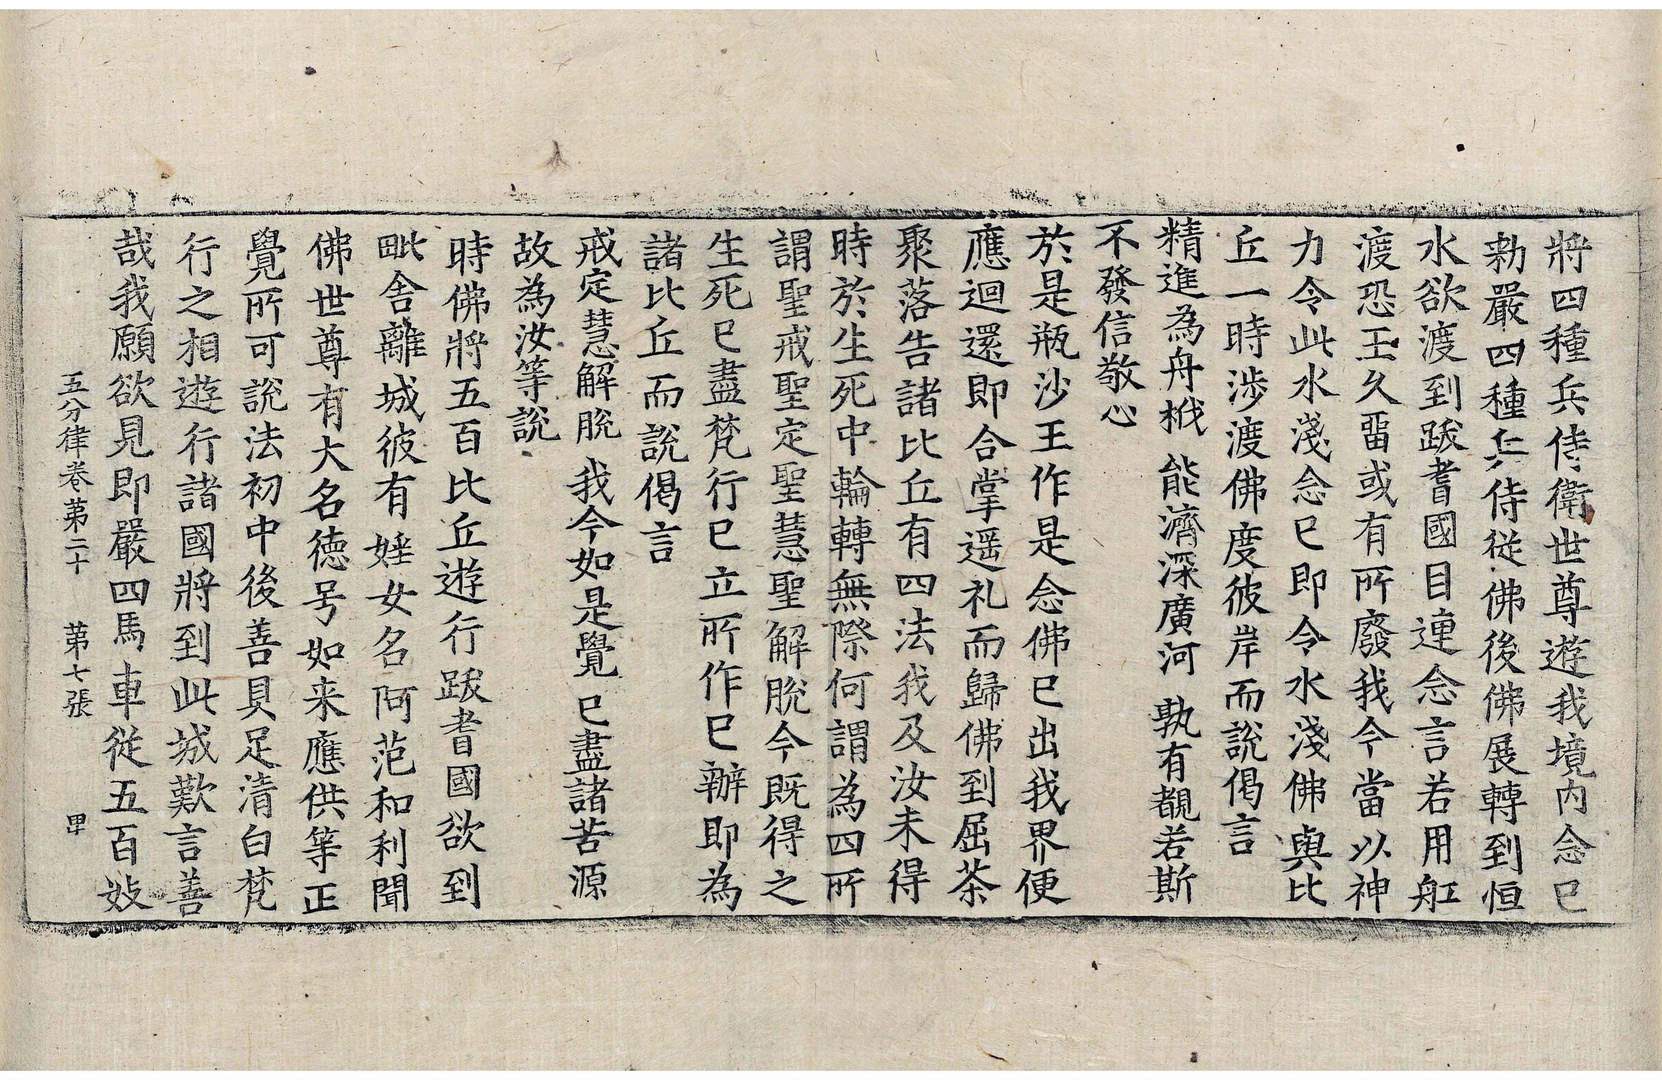 將四種兵侍衛世尊遊我境內念已
勅嚴四種兵侍従佛後佛展轉到恒
水欲渡到跋耆國目連念言若用舡
渡恐王久畱或有所廢我今當以神
力令此水淺念已即令水淺佛與比
丘一時涉渡佛度彼岸而說偈言
精進為舟栰　能濟深廣河　孰有覩若斯
不發信敬心
於是瓶沙王作是念佛已出我界便
應迴還即合掌遥礼而歸佛到屈茶
聚落告諸比丘有四法我及汝未得
時於生死中輪轉無際何謂為四所
謂聖戒聖定聖慧聖解脫今既得之
生死已盡梵行已立所作已辦即為
諸比丘而說偈言
戒定慧解脫　我今如是覺　已盡諸苦源
故為汝等說
時佛將五百比丘遊行跋耆國欲到
毗舍離城彼有婬女名阿范和利聞
佛世尊有大名徳号如来應供等正
覺所可說法初中後善具足清白梵
行之相遊行諸國將到此城歎言善
哉我願欲見即嚴四馬車従五百妓
五分律卷第二十　第七張